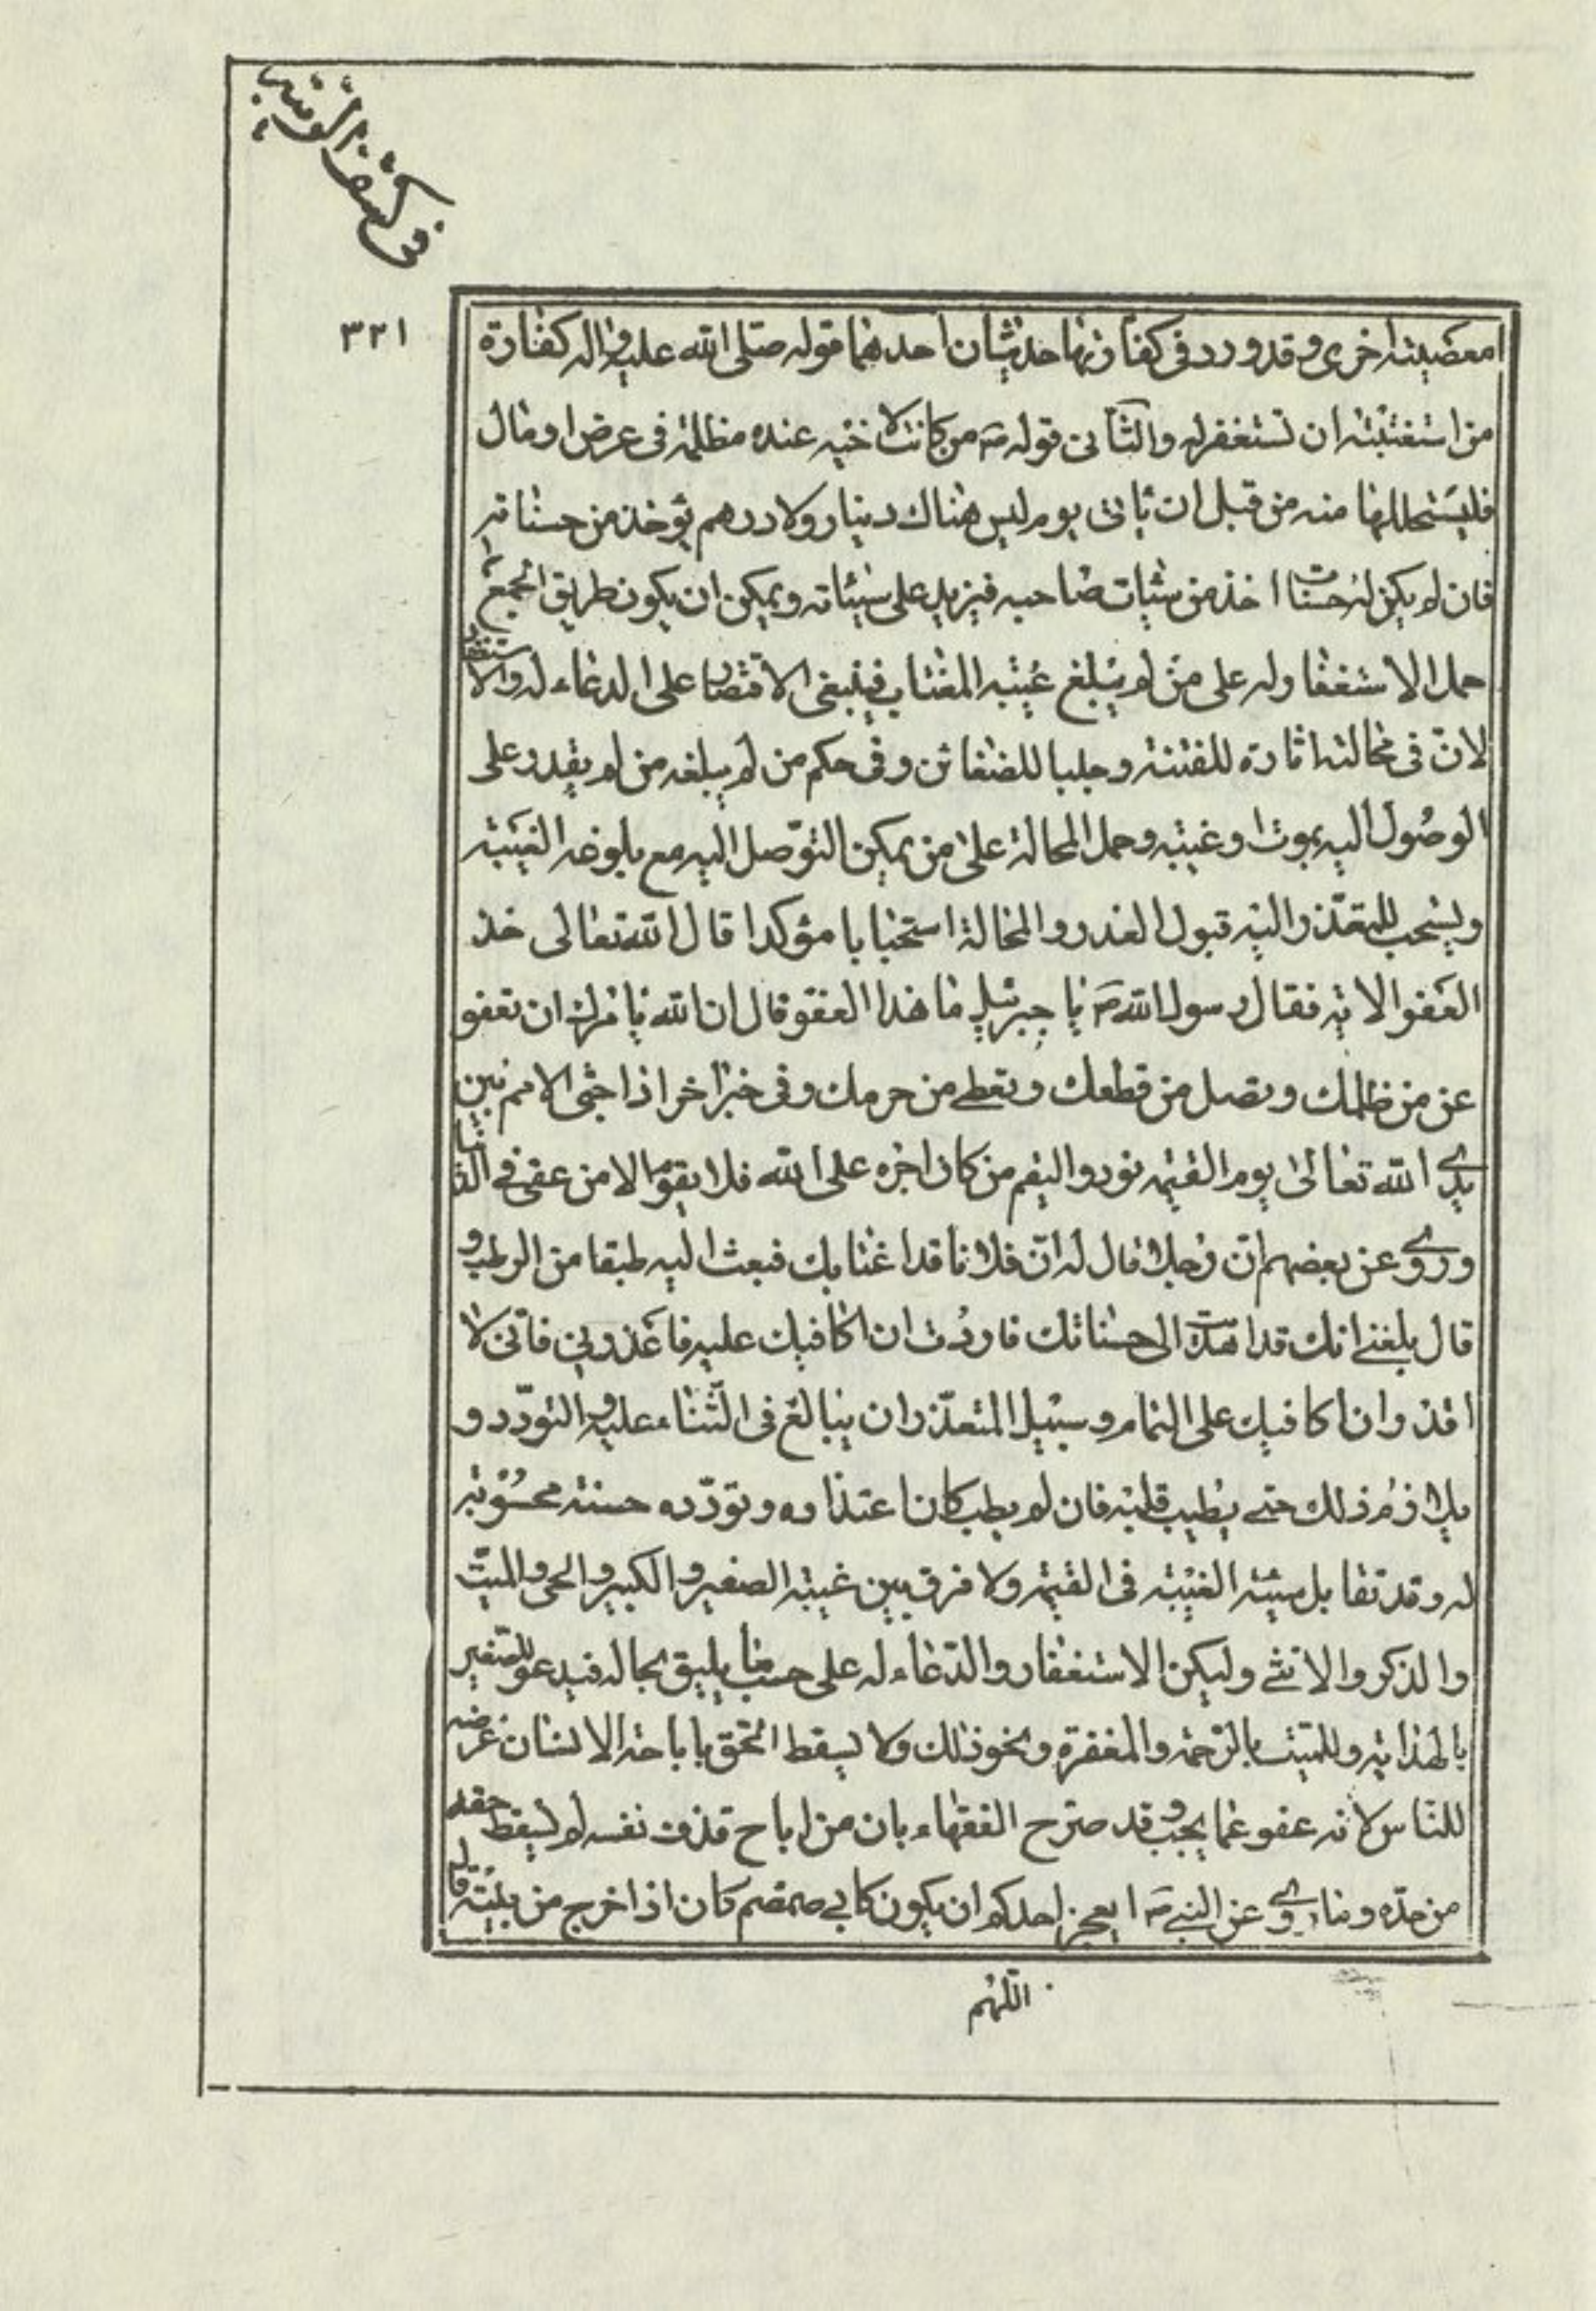 في كشف الريبة
٣٢١
معصية اخرى وقد ورد في كفارتها حديثان احدهما قوله صلى الله عليه واله كفارة
من استغتبته ان تستغفر له والثاني قوله ص من كانت لاخيه عنده مظلمة في عرض او مال
فليستحللها منه من قبل ان ياتي يوم ليس هناك دينار ولا درهم يؤخذ من حسناته
فان لم يكن له حسنات اخذ من سيئات صاحبه فيزيد على سيئاته ويمكن ان يكون طريق الجمع
حمل الاستغفار له على من لم يبلغ غيبته المغتاب فينبغي الاقتصار على الدعاء له والاستغفار
لان في محالته اثارة للفتنة وجلبا للضغائن وفي حكم من لم يبلغه من لم يقدر على
الوصول اليه بموت او غيبة وحمل المحالة على من يمكن التوصل اليه مع بلوغه الغيبة
ويستحب للمتعذر اليه قبول العذر والمحالة استحبابا مؤكدا قال الله تعالى خذ
العفو الاية فقال رسول الله ص يا جبرئيل ما هذا العفو قال ان الله يامرك ان تعفو
عن من ظلمك وتصل من قطعك وتعطي من حرمك وفي خبر اخر اذا جثى الامم بين
يدي الله تعالى يوم القيمة نودوا ليقم من كان اجره على الله فلا يقوم الا من عفى في الدنيا
وروي عن بعضهم ان رجلا قال له ان فلانا قد اغتابك فبعث اليه طبقا من الرطب و
قال بلغني انك قد اهديت الى حسناتك فاردت ان اكافيك عليه فاعذرني فاني لا
اقدر ان اكافيك على التمام وسبيل المتعذر ان يبالغ في الثناء عليه والتودد و
يلازم ذلك حتى يطيب قلبه فان لم يطب كان اعتذاره وتودده حسنة محسوبة
له وقد تقابل سيئة الغيبة في القيمة ولا فرق بين غيبة الصغير والكبير والحي والميت
والذكر والانثى وليكن الاستغفار والدعاء له على حسب ما يليق بحاله فيدعو للصغير
بالهداية وللميت بالرحمة والمغفرة ونحو ذلك ولا يسقط الحق باباحة الانسان عرضه
للناس لانه عفو عما يجب وقد صرح الفقهاء بان من اباح قذف نفسه لم يسقط حقه
من حده وما روي عن النبي ص ايعجز احدكم ان يكون كابي ضمضم كان اذا خرج من بيته قال
اللهم